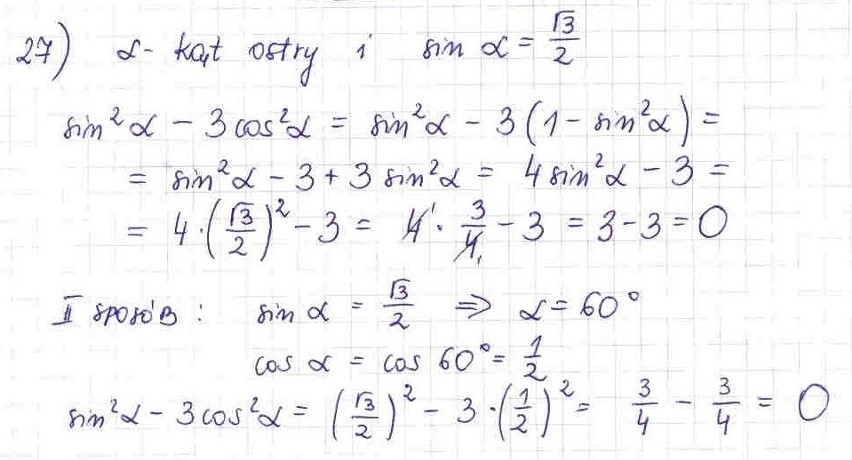 27) α - kąt ostry i sin α = √3/2
sin²α − 3cos²α = sin²α − 3(1 − sin²α) =
= sin²α − 3 + 3 sin²α = 4sin²α − 3 =
= 4·(√3/2)² − 3 = 4¹· 3/4₁ − 3 = 3 − 3 = 0
II sposób : sin α = √3/2 ⇒ α = 60°
cos α = cos 60° = 1/2
sin²α − 3cos²α = (√3/2)² − 3·(1/2)² = 3/4 − 3/4 = 0